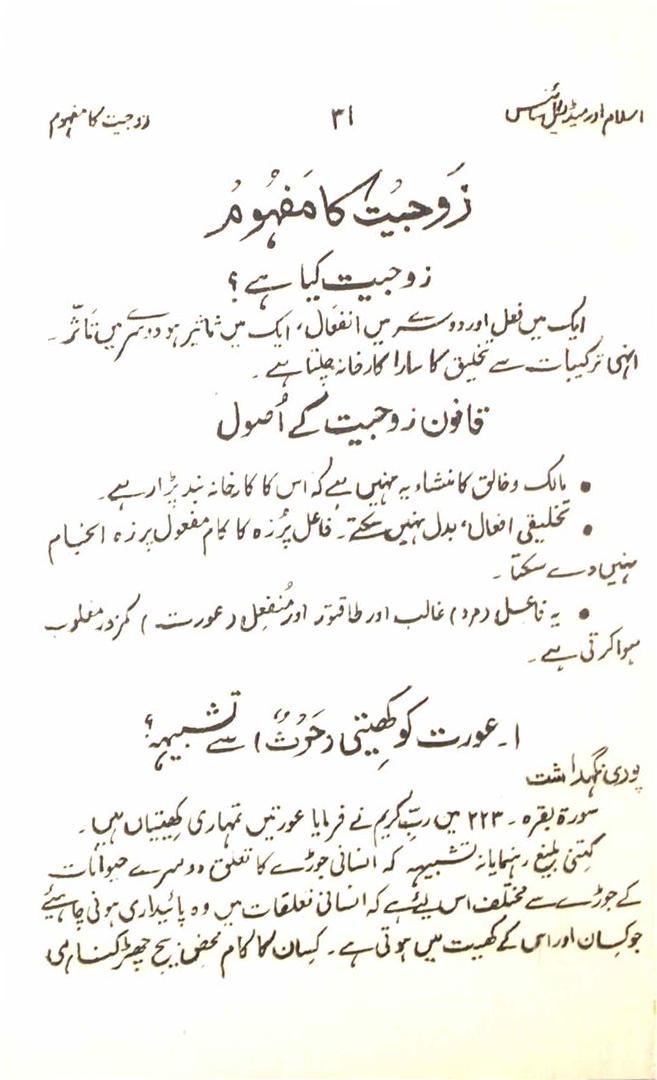 اسلام اور میڈیکل سائنس ۳۱ زوجیت کا مفہوم
زَوجیُت کا مَفہُومُ
زوجیت کیا ہے؟
ایک میں فعل اور دوسرے میں انفعال، ایک میں تاثیر ہو دوسرے میں تَاثّر۔
انہی ترکیبات سے تخلیق کا سارا کارخانہ چلتا ہے۔
قانون زوجیت کے اُصول
• مالک و خالق کا منشاء یہ نہیں ہے کہ اس کا کارخانہ بند پڑا رہے۔
• تخلیقی افعال بدل نہیں سکتے۔ فاعل پُرزہ کا کام مفعول پرزہ انجام
نہیں دے سکتا۔
• یہ فاعل (مرد) غالب اور طاقتور اور مُنفعِل (عورت) کمزور مغلوب
ہوا کرتی ہے۔
۱۔ عورت کو کھیتی (حَرْثٌ) سے تشبیہہ؟
پوری نگہداشت
سورۃ بقرہ۔ ۲۲۳ میں ربِّ کریم نے فرمایا عورتیں تمہاری کھیتیاں ہیں۔
کتنی بلیغ رہنمایانہ تشبیہہ کہ انسانی جوڑے کا تعلق دوسرے حیوانات
کے جوڑے سے مختلف اس لیئے ہے کہ انسانی تعلقات میں وہ پائیداری ہونی چاہیئے
جو کسان اور اس کے کھیت میں ہوتی ہے۔ کسان کا کام محض بیج چھڑکنا ہی